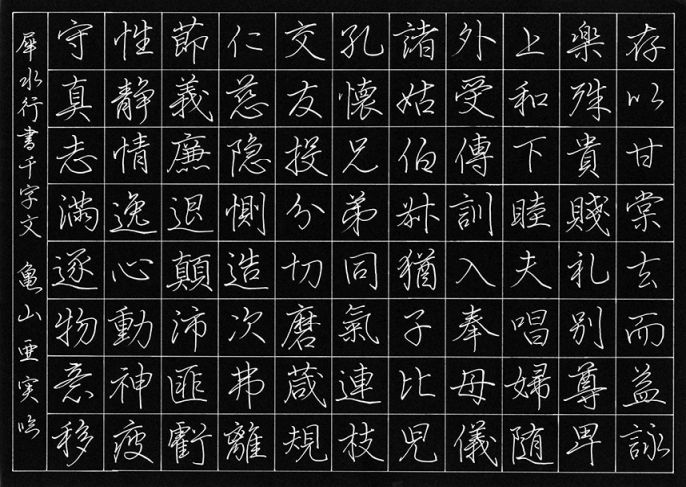 存以甘棠去而益詠
楽殊貴賤礼別尊卑
上和下睦夫唱婦随
外受傳訓入奉母儀
諸姑伯叔猶子比児
孔懐兄弟同氣連枝
交友投分切磨葴規
仁慈隐惻造次弗離
節義廉退顛沛匪虧
性静情逸心動神疲
守真志満逐物意移
犀水行書千字文 亀山亜実臨